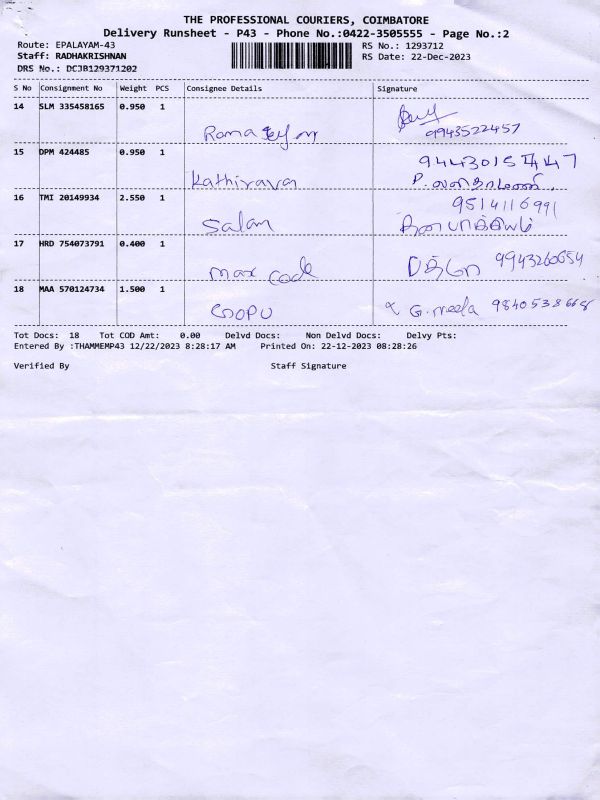 THE PROFESSIONAL COURIERS, COIMBATORE
Delivery Runsheet - P43 - Phone No.:0422-3505555 - Page No.:2
Route: EPALAYAM-43 RS No.: 1293712
Staff: RADHAKRISHNAN RS Date: 22-Dec-2023
DRS No.: DCJB129371202
S No Consignment No Weight PCS Consignee Details Signature
14 SLM 335458165 0.950 1
9943522457
15 DPM 424485 0.950 1 9443015447
Kathiravan P.
16 TMI 20149934 2.550 1 9514116991
Salan தனபாக்கியம்
17 HRD 754073791 0.400 1 9943260654
max code
18 MAA 570124734 1.500 1 G. neela 9840538668
GOPU
Tot Docs: 18 Tot COD Amt: 0.00 Delvd Docs: Non Delvd Docs: Delvy Pts:
Entered By :THAMMEMP43 12/22/2023 8:28:17 AM Printed On: 22-12-2023 08:28:26
Verified By Staff Signature